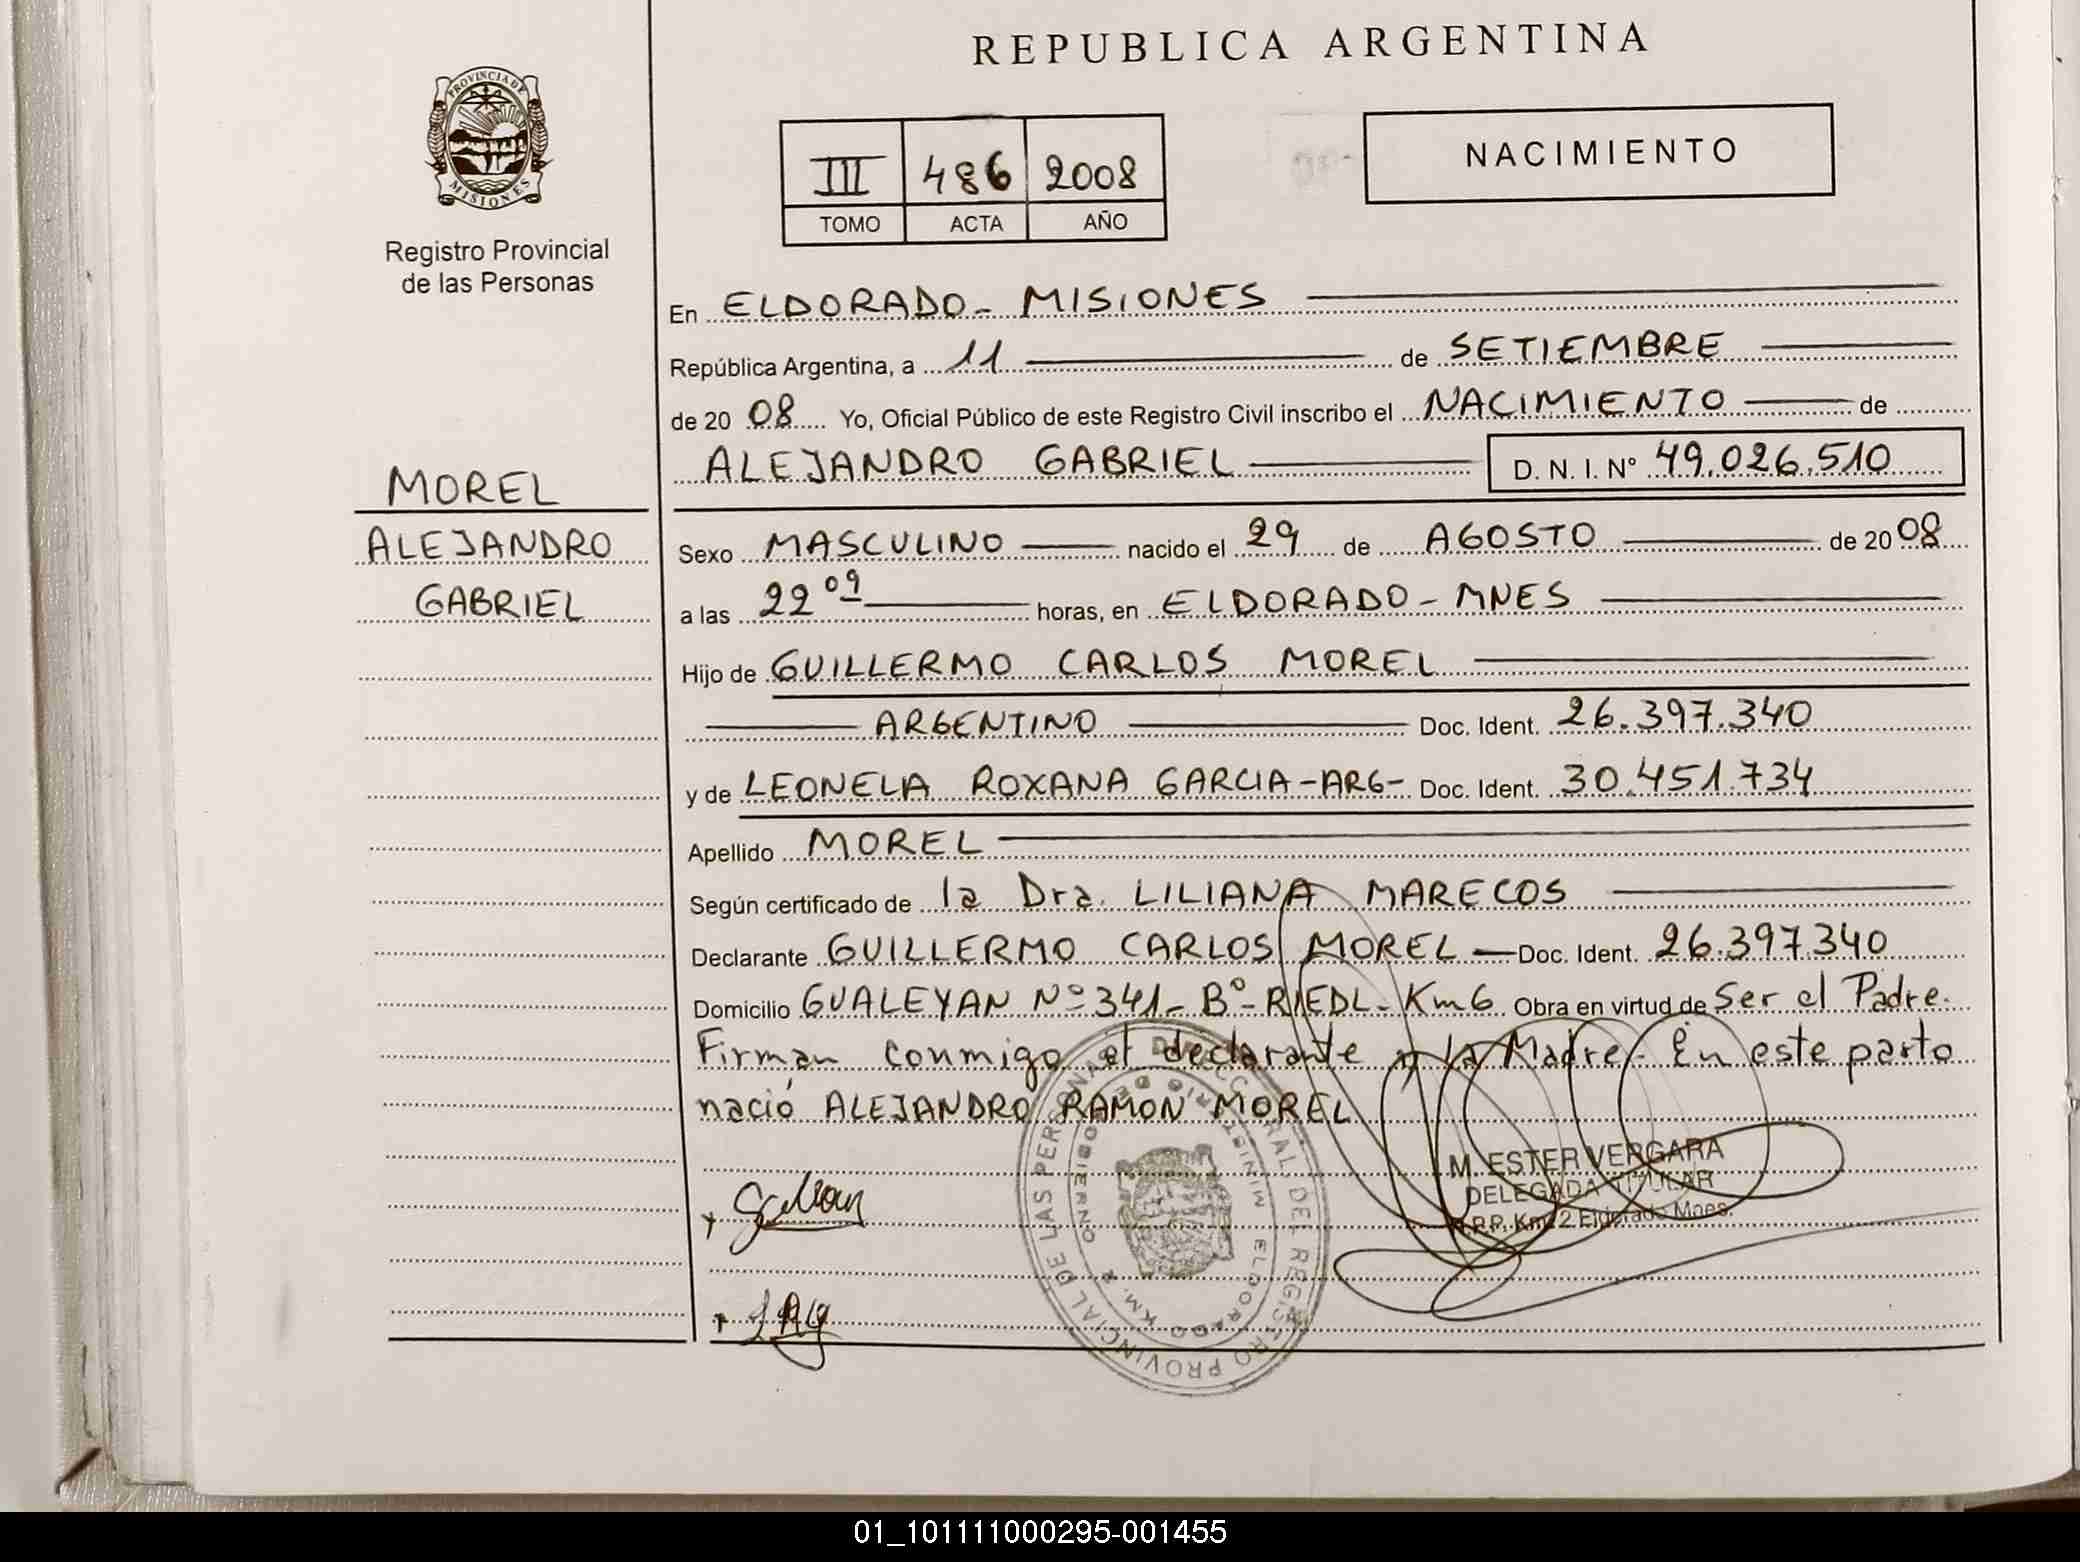 REPUBLICA ARGENTINA
PROVINCIA DE
MISIONES
Registro Provincial
de las Personas
III 486 2008
TOMO ACTA AÑO
NACIMIENTO
En ELDORADO - MISIONES
República Argentina, a 11 de SETIEMBRE
de 2008 Yo, Oficial Público de este Registro Civil inscribo el NACIMIENTO de
ALEJANDRO GABRIEL D. N. I. N° 49.026.510
MOREL
ALEJANDRO
GABRIEL
Sexo MASCULINO nacido el 29 de AGOSTO de 2008
a las 22 09 horas, en ELDORADO - MNES
Hijo de GUILLERMO CARLOS MOREL
ARGENTINO Doc. Ident. 26.397.340
y de LEONELA ROXANA GARCIA-ARG- Doc. Ident. 30.451.734
Apellido MOREL
Según certificado de la Dra. LILIANA MARECOS
Declarante GUILLERMO CARLOS MOREL Doc. Ident. 26.397.340
Domicilio GUALEYAN Nº 341 - Bº - RIEDL - Km 6 Obra en virtud de Ser el Padre.
Firman conmigo el declarante y la Madre - En este parto
nació ALEJANDRO RAMON MOREL
M. ESTER VERGARA
DELEGADA TITULAR
R.P.P. Km. 2 Eldorado Mnes.
01_101111000295-001455